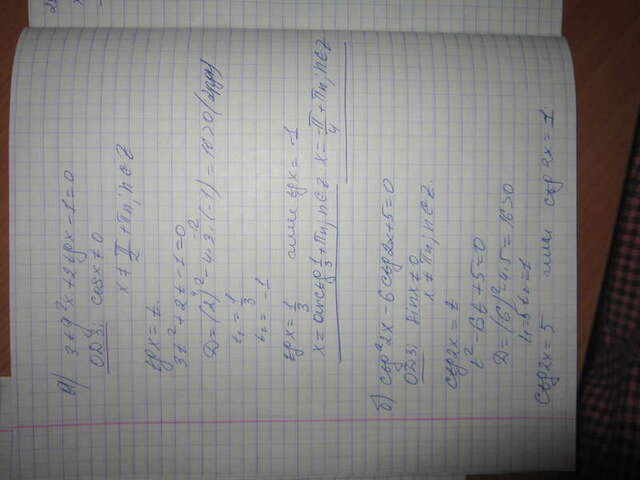 а) 3tg²x+2tgx-1=0
ОДЗ: cosx≠0
x≠π/2+πn; n∈Z
tgx=t
3t²+2t-1=0
D=(2)²-4·3·(-1)=16>0 (2рдк)
t₁=1/3
t₂=-1
tgx=1/3 или tgx=-1
x=arctg 1/3+πn; n∈Z x=-π/4+πn; n∈Z
б) ctg²2x-6ctg2x+5=0
ОДЗ: sinx≠0
x≠πn; n∈Z.
ctg2x=t
t²-6t+5=0
D=(6)²-4·5=16>0
t₁=5 t₂=1
ctg2x=5 или ctg2x=1